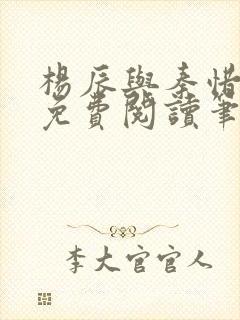 楊辰與秦惜
免費閱讀筆
李大官官人